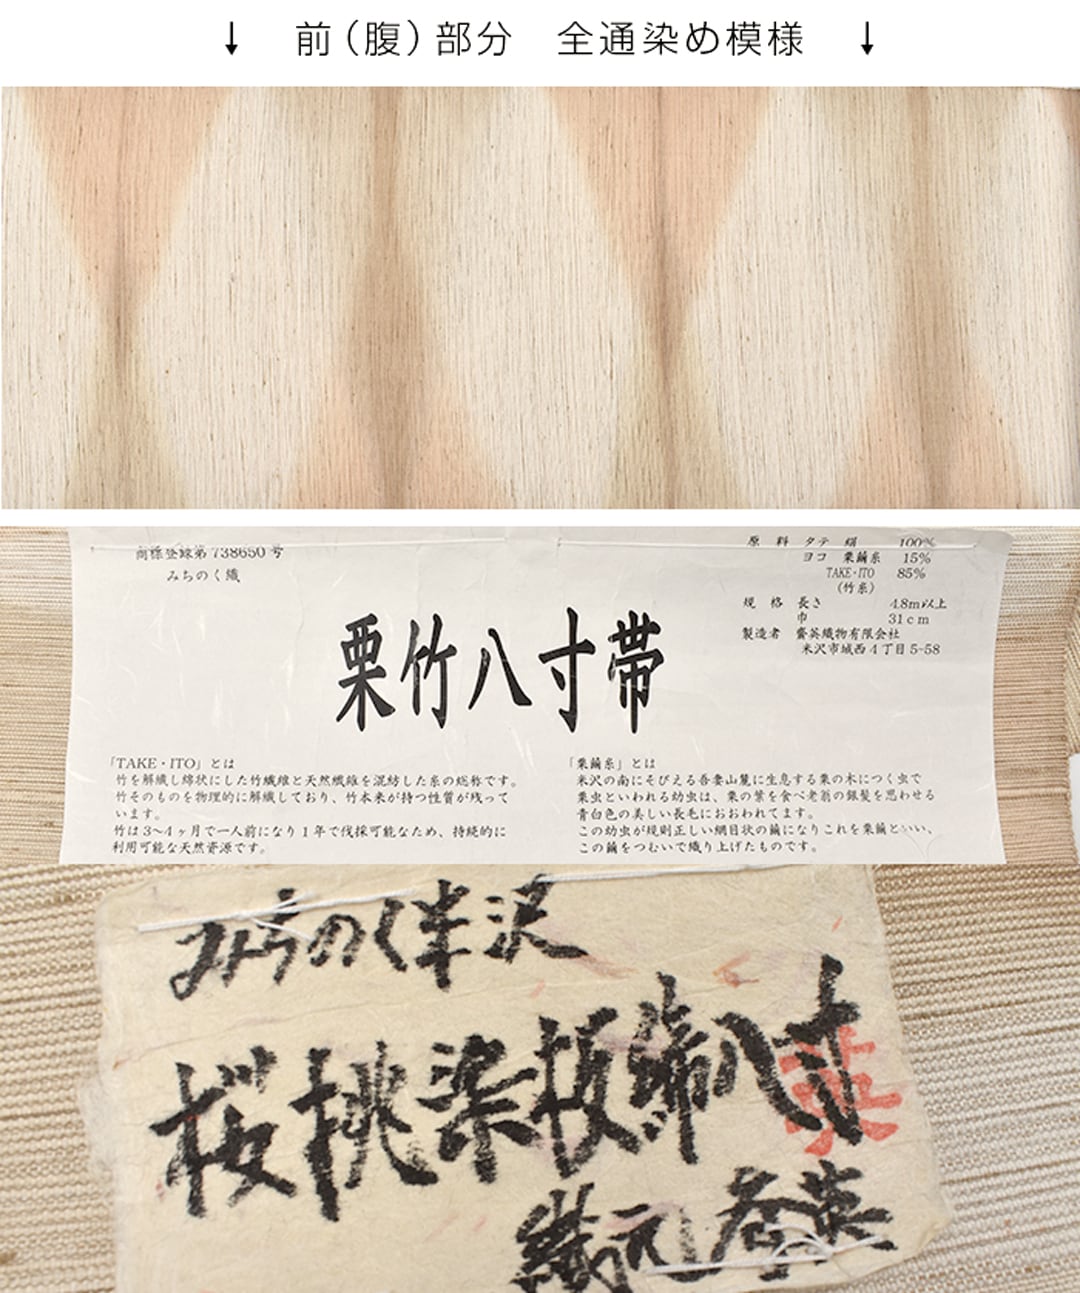 ↓ 前（腹）部分 全通染め模様 ↓
商標登録第738650号
みちのく織
栗竹八寸帯
原料 タテ 絹 100%
ヨコ 栗繭糸 15%
TAKE・ITO 85%
（竹糸）
規格 長さ 4.8m以上
巾 31cm
製造者 齋英織物有限会社
米沢市城西4丁目5-58
「TAKE・ITO」とは
竹を解繊し綿状にした竹繊維と天然繊維を混紡した糸の総称です。
竹そのものを物理的に解繊しており、竹本来が持つ性質が残って
います。
竹は3~4ヶ月で一人前になり1年で伐採可能なため、持続的に
利用可能な天然資源です。
「栗繭糸」とは
米沢の南にそびえる吾妻山麓に生息する栗の木につく虫で
栗虫といわれる幼虫は、栗の葉を食べ老翁の銀髪を思わせる
青白色の美しい長毛におおわれてます。
この幼虫が規則正しい網目状の繭になりこれを栗繭といい、
この繭をつむいで織り上げたものです。
みちのく米沢
桜桃染板締八寸
織元 斉英